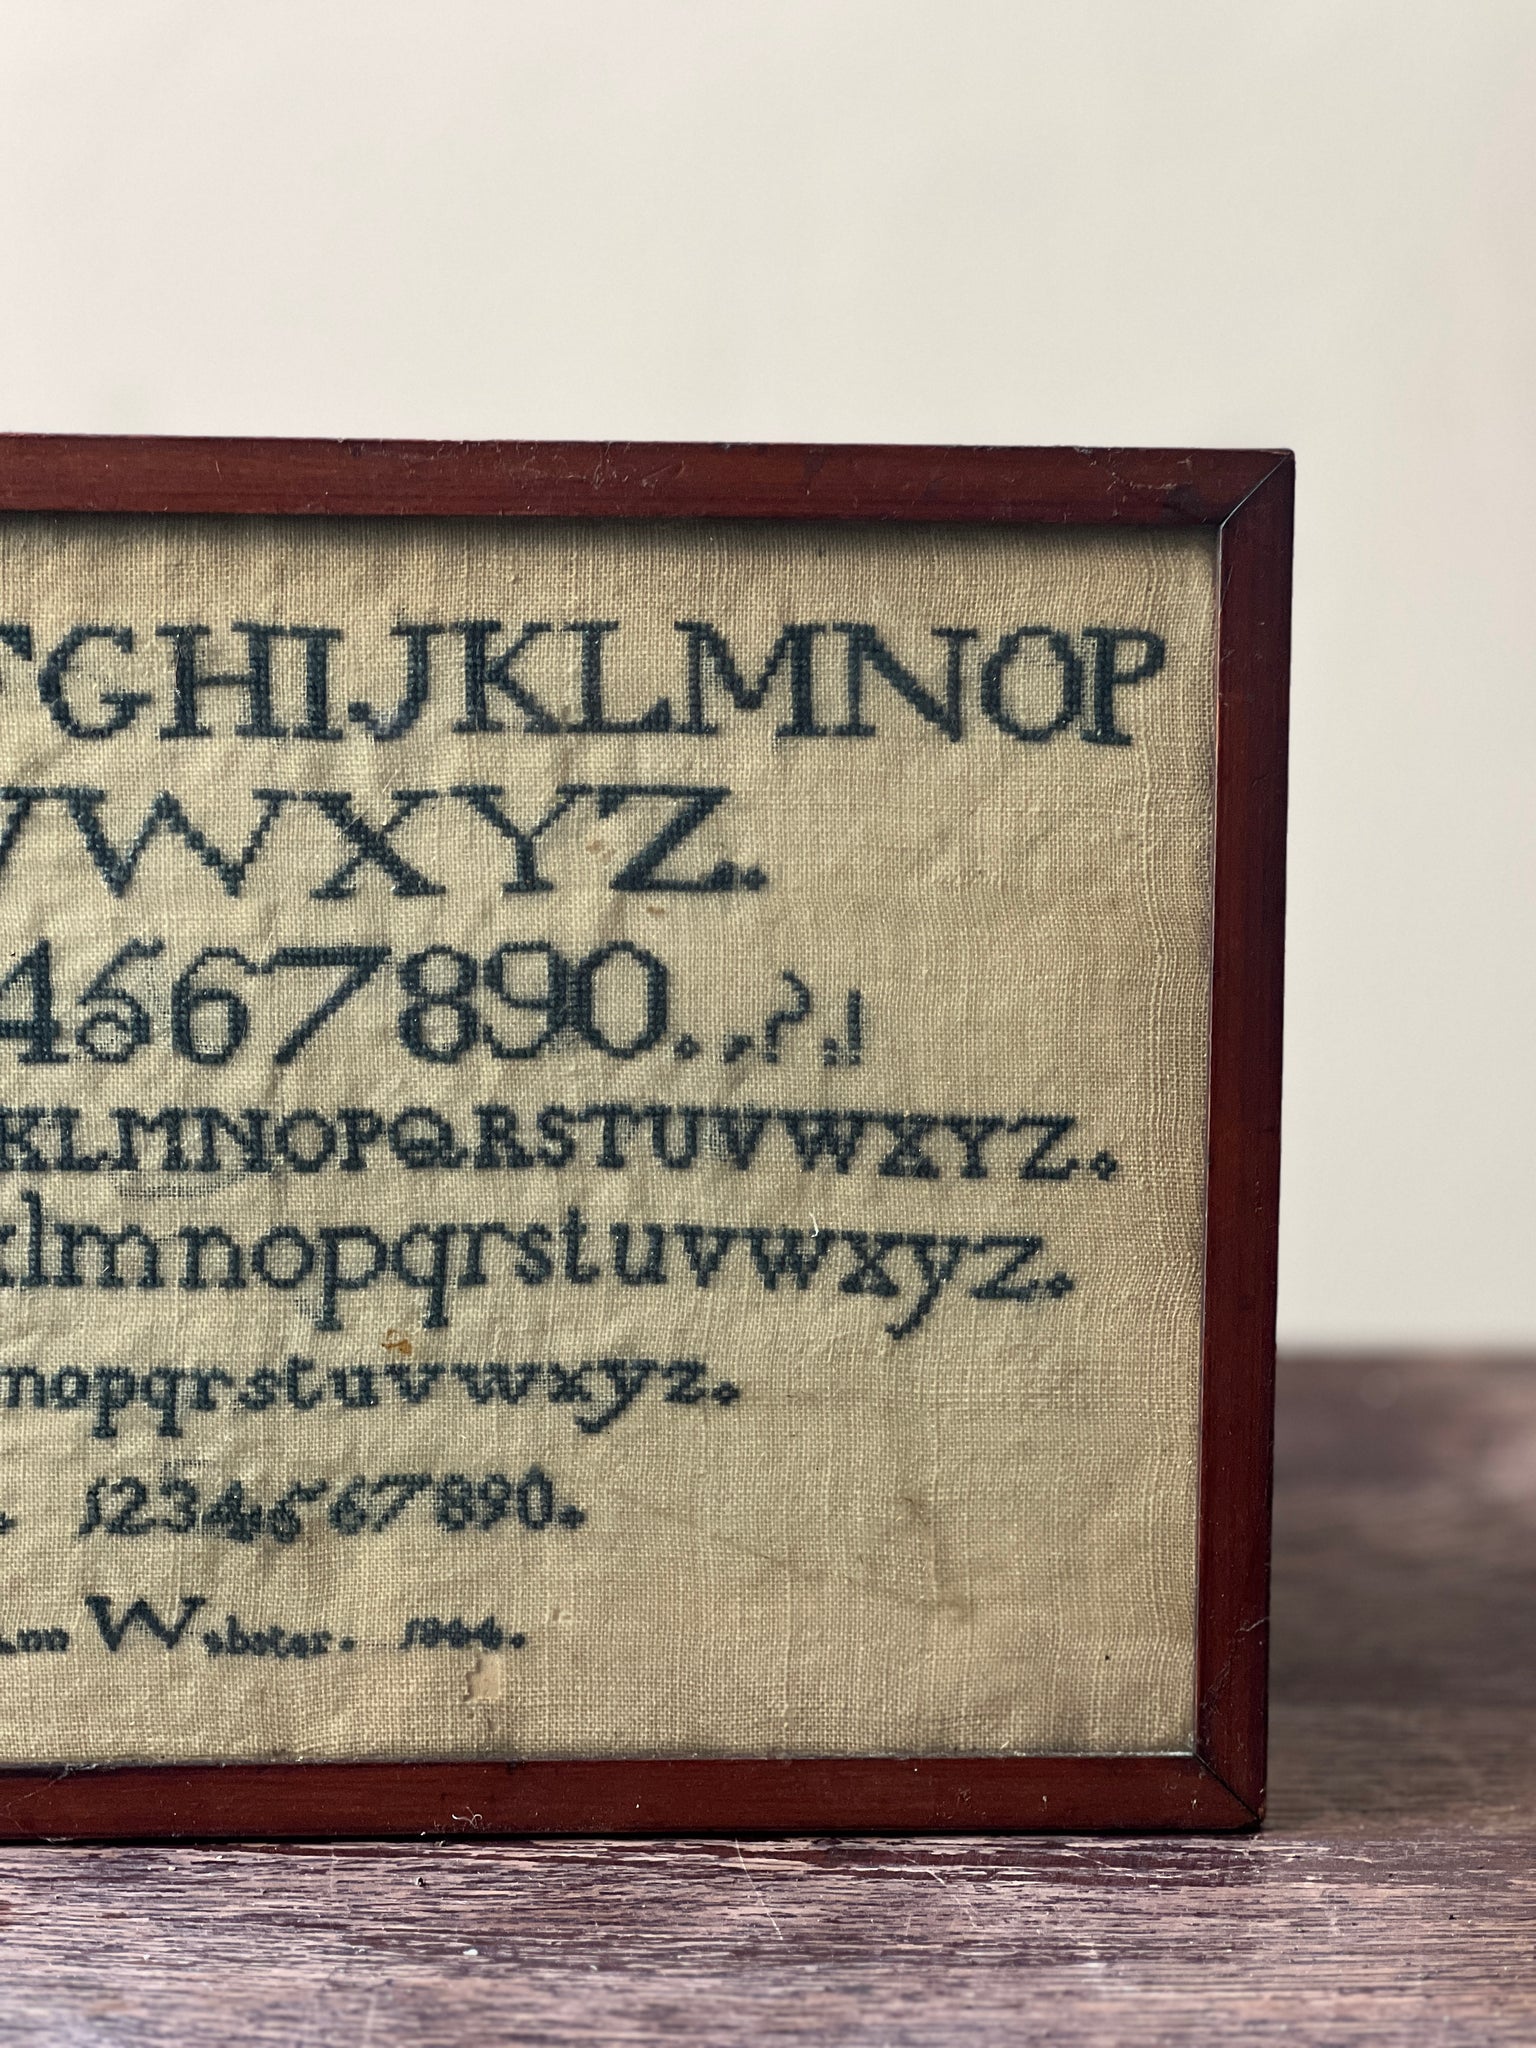 FGHIJKLMNOP
VWXYZ.
4567890.,?!
KLMNOPQRSTUVWXYZ.
klmnopqrstuvwxyz.
nopqrstuvwxyz.
. 1234567890.
Ann Webster.